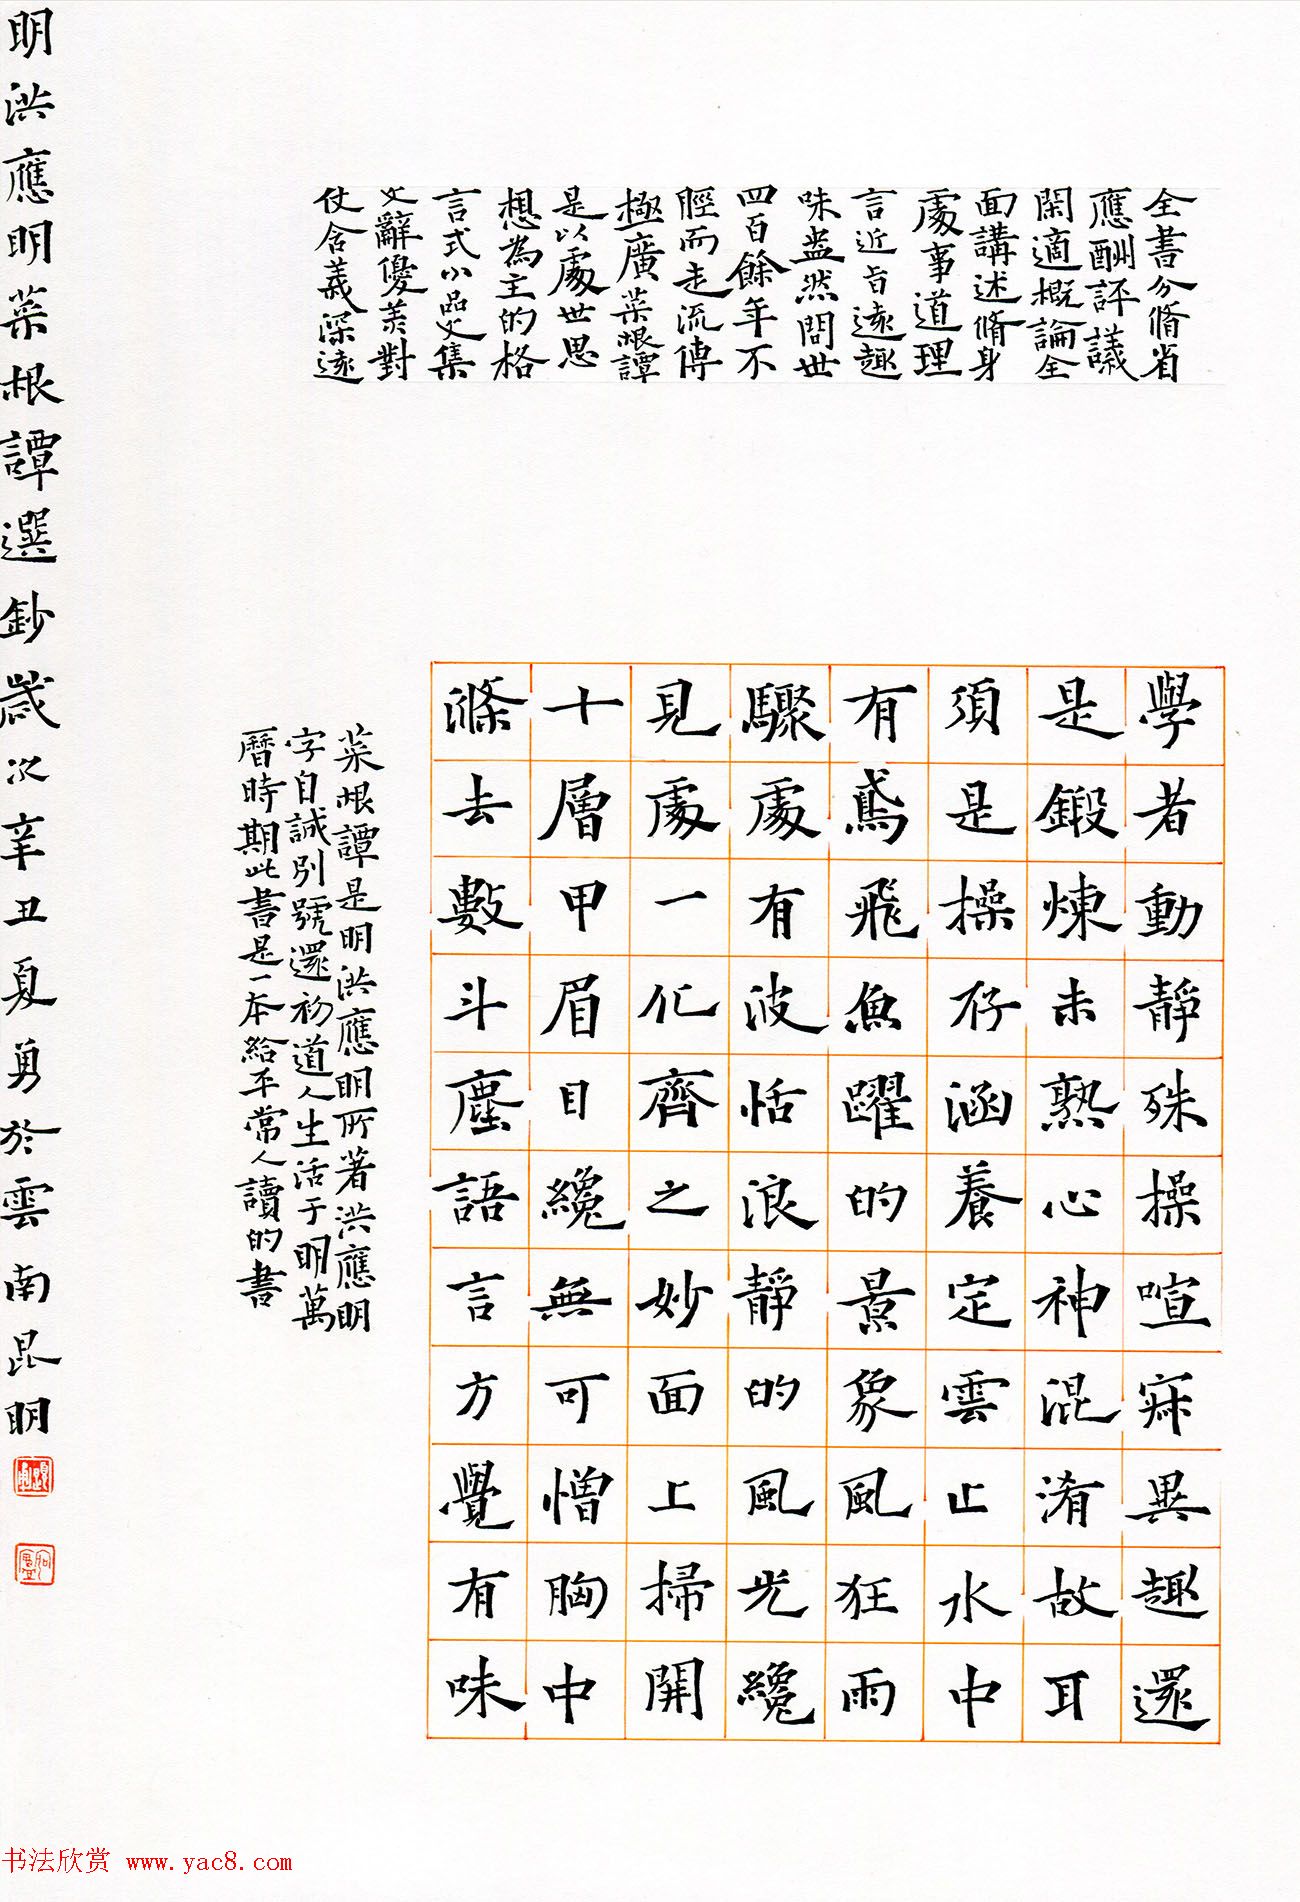 全書分脩省
應酬評議
閑適概論全
面講述脩身
處事道理
言近旨遠趣
味盎然問世
四百餘年不
脛而走流傳
極廣菜根譚
是以處世思
想為主的格
言式小品文集
文辭優美對
仗含義深遠
學者動靜殊操喧寂異趣還
是鍛煉未熟心神混淆故耳
須是操存涵養定雲止水中
有鳶飛魚躍的景象風狂雨
驟處有波恬浪靜的風光纔
見處一化齊之妙面上掃開
十層甲眉目纔無可憎胸中
滌去數斗塵語言方覺有味
菜根譚是明洪應明所著洪應明
字自誠別號還初道人生活于明萬
曆時期此書是一本給平常人讀的書
明洪應明菜根譚選鈔歲次辛丑夏勇於雲南昆明
书法欣赏 www.yac8.com